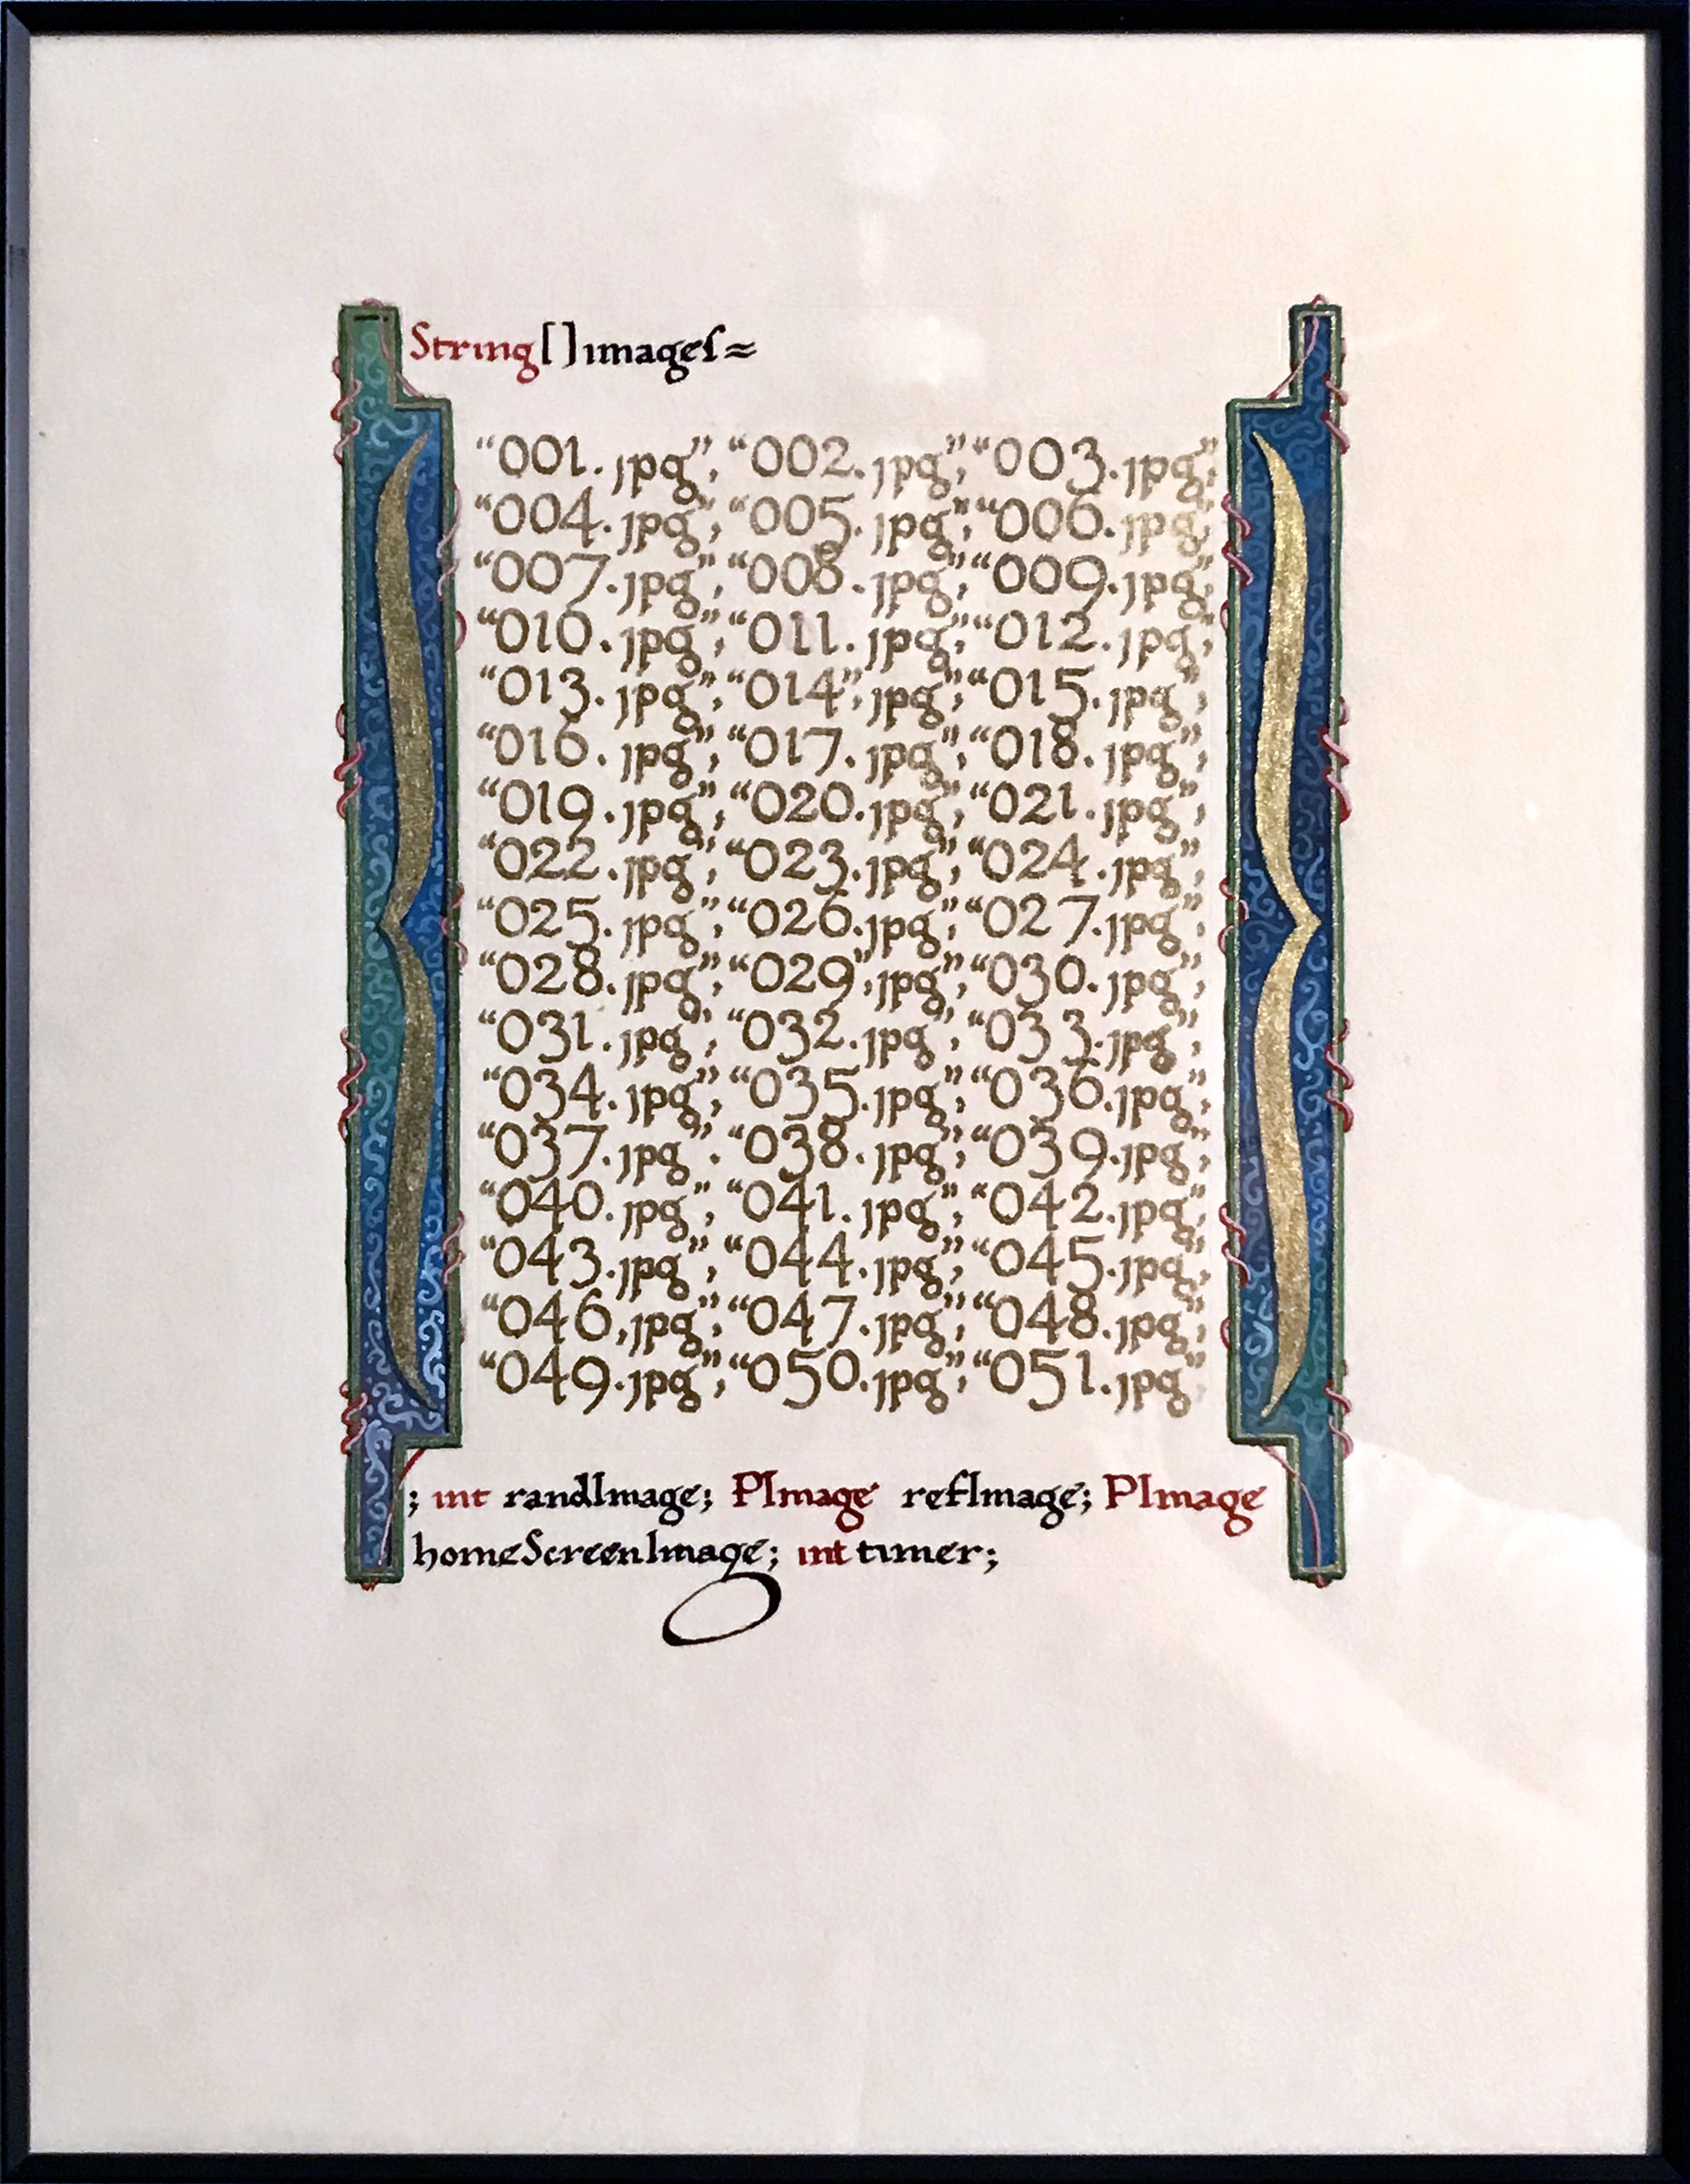 String[]imageſ=
{
“001.jpg”,“002.jpg”,“003.jpg”,
“004.jpg”,“005.jpg”,“006.jpg”,
“007.jpg”,“008.jpg”,“009.jpg”,
“010.jpg”,“011.jpg”,“012.jpg”,
“013.jpg”,“014”,jpg”,“015.jpg”,
“016.jpg”,“017.jpg”,“018.jpg”,
“019.jpg”,“020.jpg”,“021.jpg”,
“022.jpg”,“023.jpg”,“024.jpg”,
“025.jpg”,“026.jpg”,“027.jpg”,
“028.jpg”,“029”,jpg”,“030.jpg”,
“031.jpg”,“032.jpg”,“033.jpg”,
“034.jpg”,“035.jpg”,“036.jpg”,
“037.jpg”.“038.jpg”,“039.jpg”,
“040.jpg”,“041.jpg”,“042.jpg”,
“043.jpg”,“044.jpg”,“045.jpg”,
“046,jpg”,“047.jpg”,“048.jpg”,
“049.jpg”,“050.jpg”,“051.jpg”
}
; int randImage; PImage refImage; PImage
homeScreenImage; int timer;